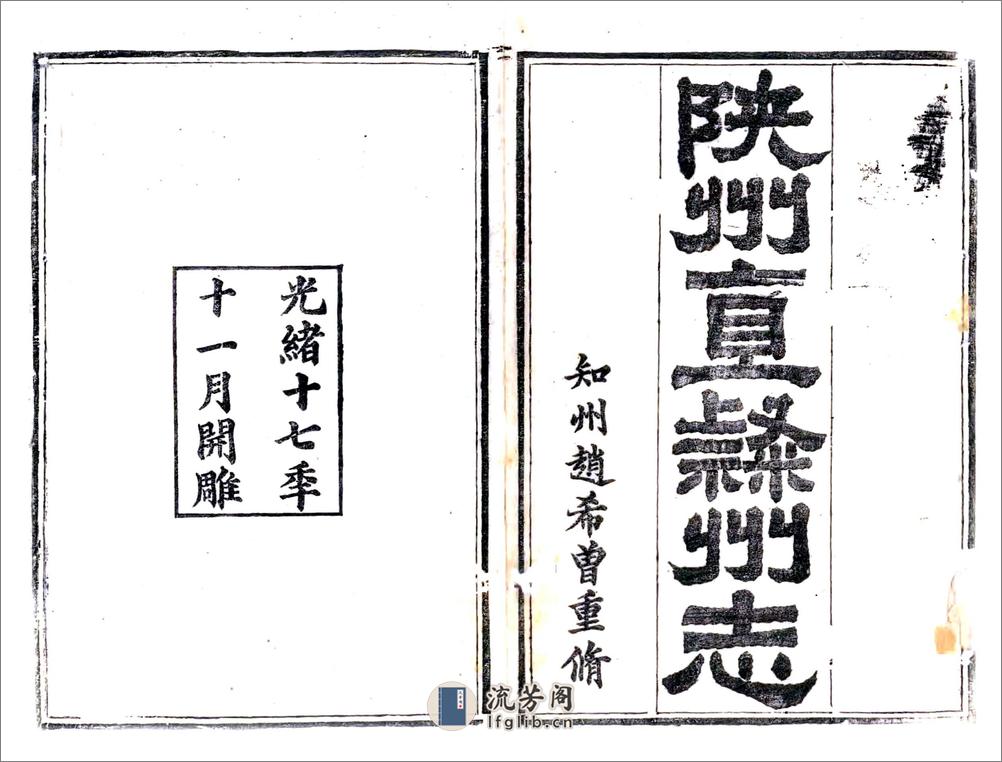 陝州直隸州志
知州趙希曾重脩
光緒十七年
十一月開雕
流芳阁
lfglib.cn